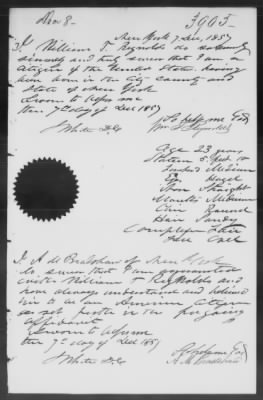 Dec 8 - 3903 -
New York 7 Dec, 1857
I William T. Reynolds do solemnly
sincerely and truly swear that I am a
citizen of the United States, having
been born in the City County and
State of New York
Sworn to before me
this 7th day of Dec 1857
So help me God
J White
Age 23 years
Stature 5 feet 10
Forehead Medium
Eyes Hazel
Nose Straight
Mouth Medium
Chin Round
Hair Sandy
Complexion Fair
Face Oval
I, A M Bradshaw of New York
do swear that I am acquainted
with William T Reynolds and
have always understood and believed
him to be an American Citizen
as set forth in the foregoing
affidavit
Sworn to before me
this 7th day of Dec 1857
So help me God
J White
A. M. Bradshaw